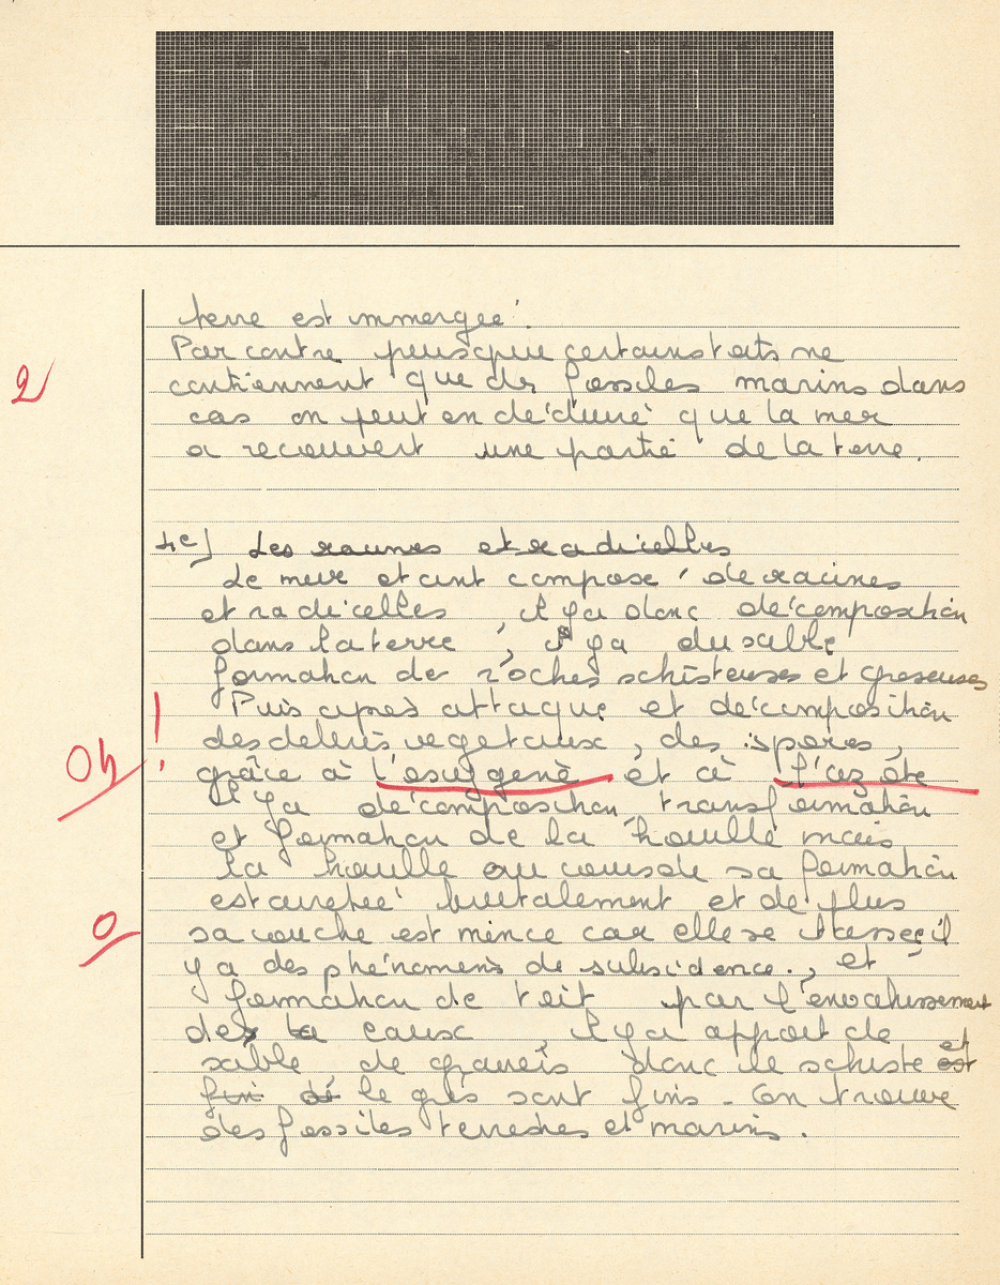 terre est immergée.
Par contre puisque certains toits ne
2 contiennent que des fossiles marins dans
cas on peut en déduire que la mer
a recouvert une partie de la terre.
4e) Les racines et radicelles
Le mur étant composé de racines
et radicelles, il y a donc décomposition
dans la terre, il y a du sable
formation de roches schisteuses et greseuses
Puis après attaque et décomposition
des debris vegetaux, des spores,
Oh! grâce à l'oxygene et à l'azote
il y a décomposition, transformation
et formation de la houille mais
la houille au cours de sa formation
est arretée brutalement et de plus
0 sa couche est mince car elle se tasse, il
y a des phénomens de subsidence., et
formation de toit par l'envahissement
des la eaux, il y a apport de
sable, de graviers donc le schiste est et
fin dé le grès sont fins - On trouve
des fossiles terrestres et marins.